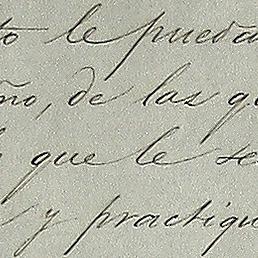 to le pueda
ño, de las q
que le se
y practiqu